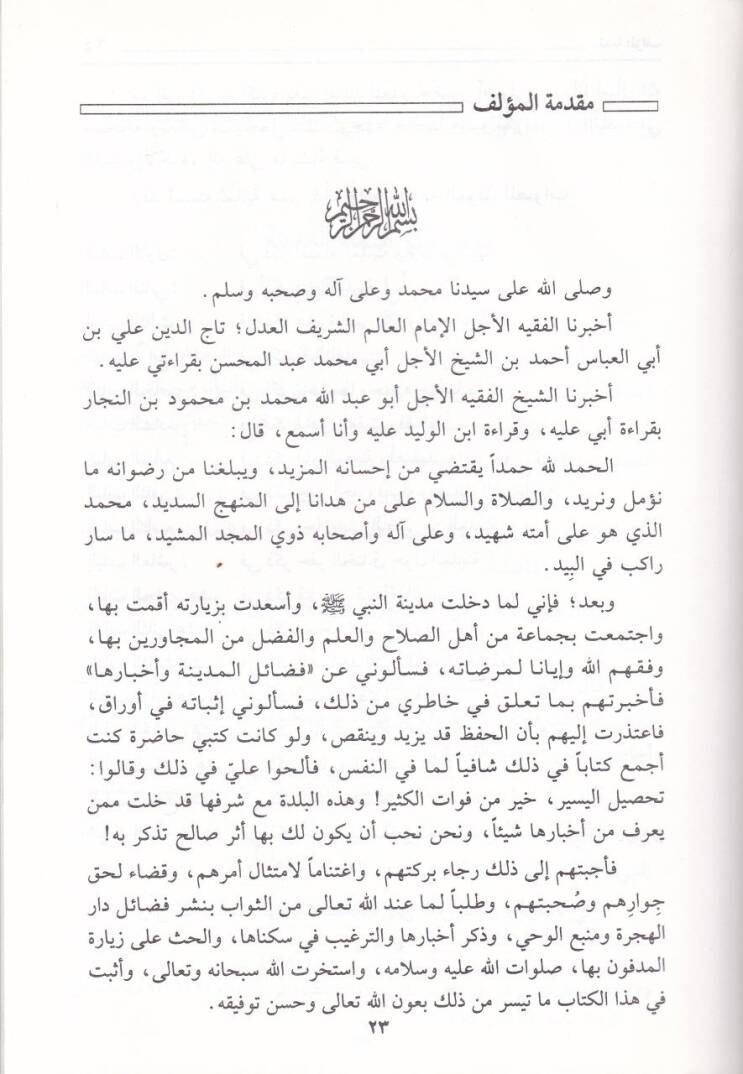 مقدمة المؤلف
بسم الله الرحمن الرحيم
وصلى الله على سيدنا محمد وعلى آله وصحبه وسلم.
أخبرنا الفقيه الأجل الإمام العالم الشريف العدل؛ تاج الدين علي بن
أبي العباس أحمد بن الشيخ الأجل أبي محمد عبد المحسن بقراءتي عليه.
أخبرنا الشيخ الفقيه الأجل أبو عبد الله محمد بن محمود بن النجار
بقراءة أبي عليه، وقراءة ابن الوليد عليه وأنا أسمع، قال:
الحمد لله حمداً يقتضي من إحسانه المزيد، ويبلغنا من رضوانه ما
نؤمل ونريد، والصلاة والسلام على من هدانا إلى المنهج السديد، محمد
الذي هو على أمته شهيد، وعلى آله وأصحابه ذوي المجد المشيد، ما سار
راكب في البِيد.
وبعد؛ فإني لما دخلت مدينة النبي ﷺ، وأسعدت بزيارته أقمت بها،
واجتمعت بجماعة من أهل الصلاح والعلم والفضل من المجاورين بها،
وفقهم الله وإيانا لمرضاته، فسألوني عن «فضائل المدينة وأخبارها»
فأخبرتهم بما تعلق في خاطري من ذلك، فسألوني إثباته في أوراق،
فاعتذرت إليهم بأن الحفظ قد يزيد وينقص، ولو كانت كتبي حاضرة كنت
أجمع كتاباً في ذلك شافياً لما في النفس، فألحوا عليّ في ذلك وقالوا:
تحصيل اليسير، خير من فوات الكثير! وهذه البلدة مع شرفها قد خلت ممن
يعرف من أخبارها شيئاً، ونحن نحب أن يكون لك بها أثر صالح تذكر به!
فأجبتهم إلى ذلك رجاء بركتهم، واغتناماً لامتثال أمرهم، وقضاء لحق
جِوارِهم وصُحبتهم، وطلباً لما عند الله تعالى من الثواب بنشر فضائل دار
الهجرة ومنبع الوحي، وذكر أخبارها والترغيب في سكناها، والحث على زيارة
المدفون بها، صلوات الله عليه وسلامه، واستخرت الله سبحانه وتعالى، وأثبت
في هذا الكتاب ما تيسر من ذلك بعون الله تعالى وحسن توفيقه.
٢٣